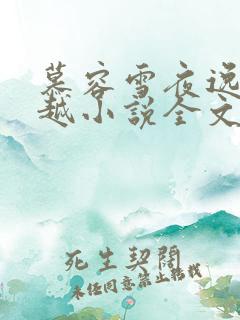 慕容雪夜逸
越小说全文
死生契阔
未经同意禁止转载